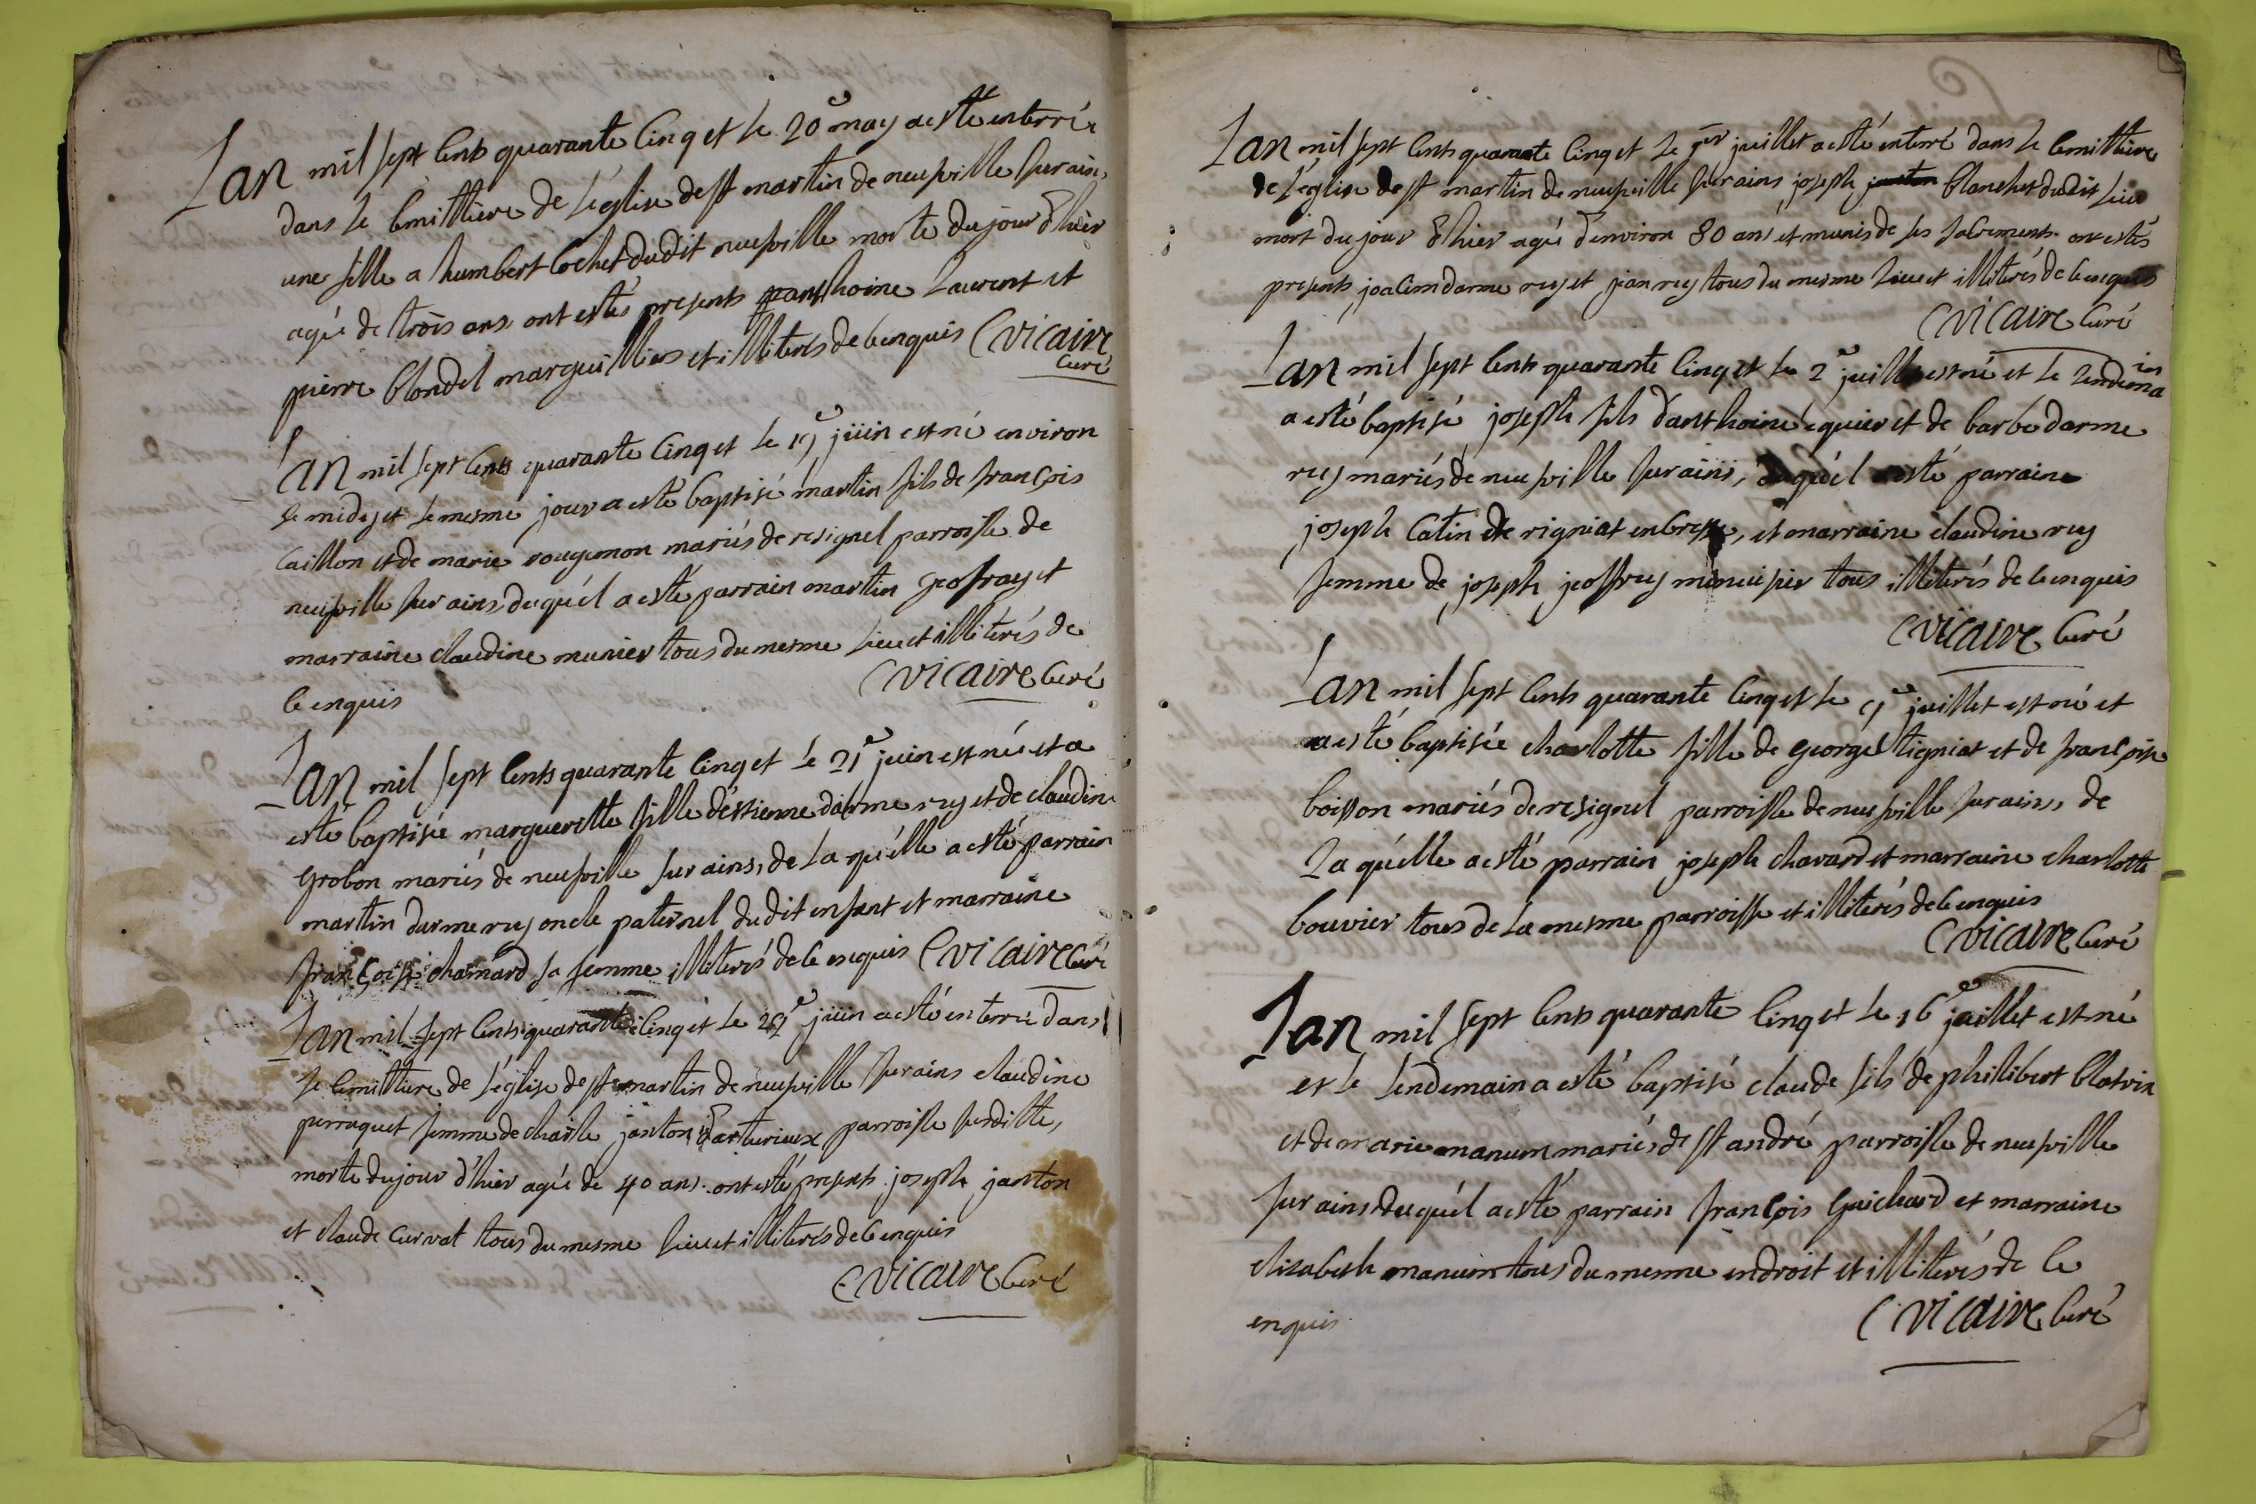 Lan mil sept cents quarante cinq et le 20e may a esté enterrée
dans le cemittiere de l'église de st martin de neufville sur ains,
une fille a humbert cochet dudit neufville morte du jour d'hier
agée de trois ans ont estés presents anthoine Laurent et
pierre blondel marguilliers et illiterés de ce enquis C vicaire
curé
Lan mil sept cents quarante cinq et le 19e juin est né environ
le midy et le mesme jour a esté baptisé martin fils de françois
caillon et de marie rougemon mariés de resignel parroisse de
neufville sur ains, duquél a esté parrain martin geofray et
marraine claudine munier tous du mesme lieu et illitérés de
ce enquis C vicaire curé
Lan mil sept cents quarante cinq et le 21e juin est née et a
esté baptisée margueritte fille d'éstienne darme rey et de claudine
grobon mariés de neufville sur ains, de la quélle a esté parrain
martin darme rey oncle paternel dudit enfant et marraine
françoise chamard sa femme illiterés de ce enquis C vicaire curé
Lan mil sept cents quarante cinq et le 29e juin a esté enterrée dans
le cemittiere de l'église de st martin de neufville sur ains claudine
perraquet femme de charle janton parroisse susditte,
morte du jour d'hier agée de 40 ans. ont esté presents joseph janton
et claude curvat tous du mesme lieu et illiterés de ce enquis
C vicaire Curé
Lan mil sept cents quarante cinq et le 1er juillet a esté enterré dans le cemittiere
de l'église de st martin de neufville sur ains joseph blanchet dudit lieu
mort du jour d'hier agé d'environ 80 ans et munis de ses sacrements. ont estés
presents joacim darme rey et jean rey tous du mesme lieu et illitérés de ce enquis
C vicaire Curé
Lan mil sept cents quarante cinq et le 2e juillet est né et le lendemain
a esté baptisé joseph fils d'anthoine équier et de barbe darme
rey mariés de neufville sur ains, duquél a esté parrain
joseph catin de rigniat en bresse, et marraine claudine rey
femme de joseph jeoffrey menuisier tous illiterés de ce enquis
C vicaire Curé
Lan mil sept cents quarante cinq et le juillet est né et
a esté baptisée charlotte fille de george tigniat et de françoise
boisson mariés de resignel parroisse de neufville sur ains, de
la quélle a esté parrain joseph chavard et marraine charlotte
bouvier tous de la mesme parroisse et illiterés de ce enquis
C vicaire Curé
Lan mil sept cents quarante cinq et le 16e juillet est né
et le lendemain a esté baptisé claude fils de philibert blatrix
et de marie manum mariés de st andré parroisse de neufville
sur ains, duquél a esté parrain françois guichard et marraine
elisabeth manum tous du mesme endroit et illiterés de ce
enquis. C. vicaire Curé